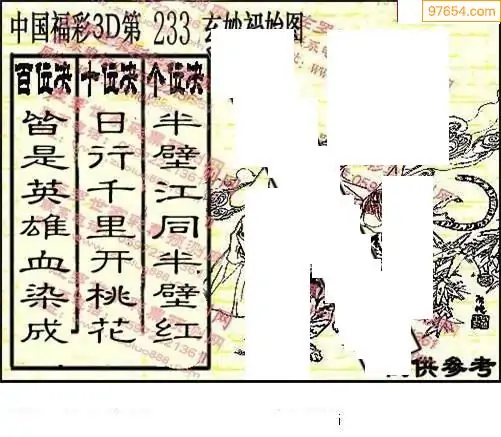 97654.com
中国福彩3D第 233 玄妙初始图
百位决 十位决 个位决
皆是英雄血染成
日行千里开桃花
半壁江同半壁红
供参考